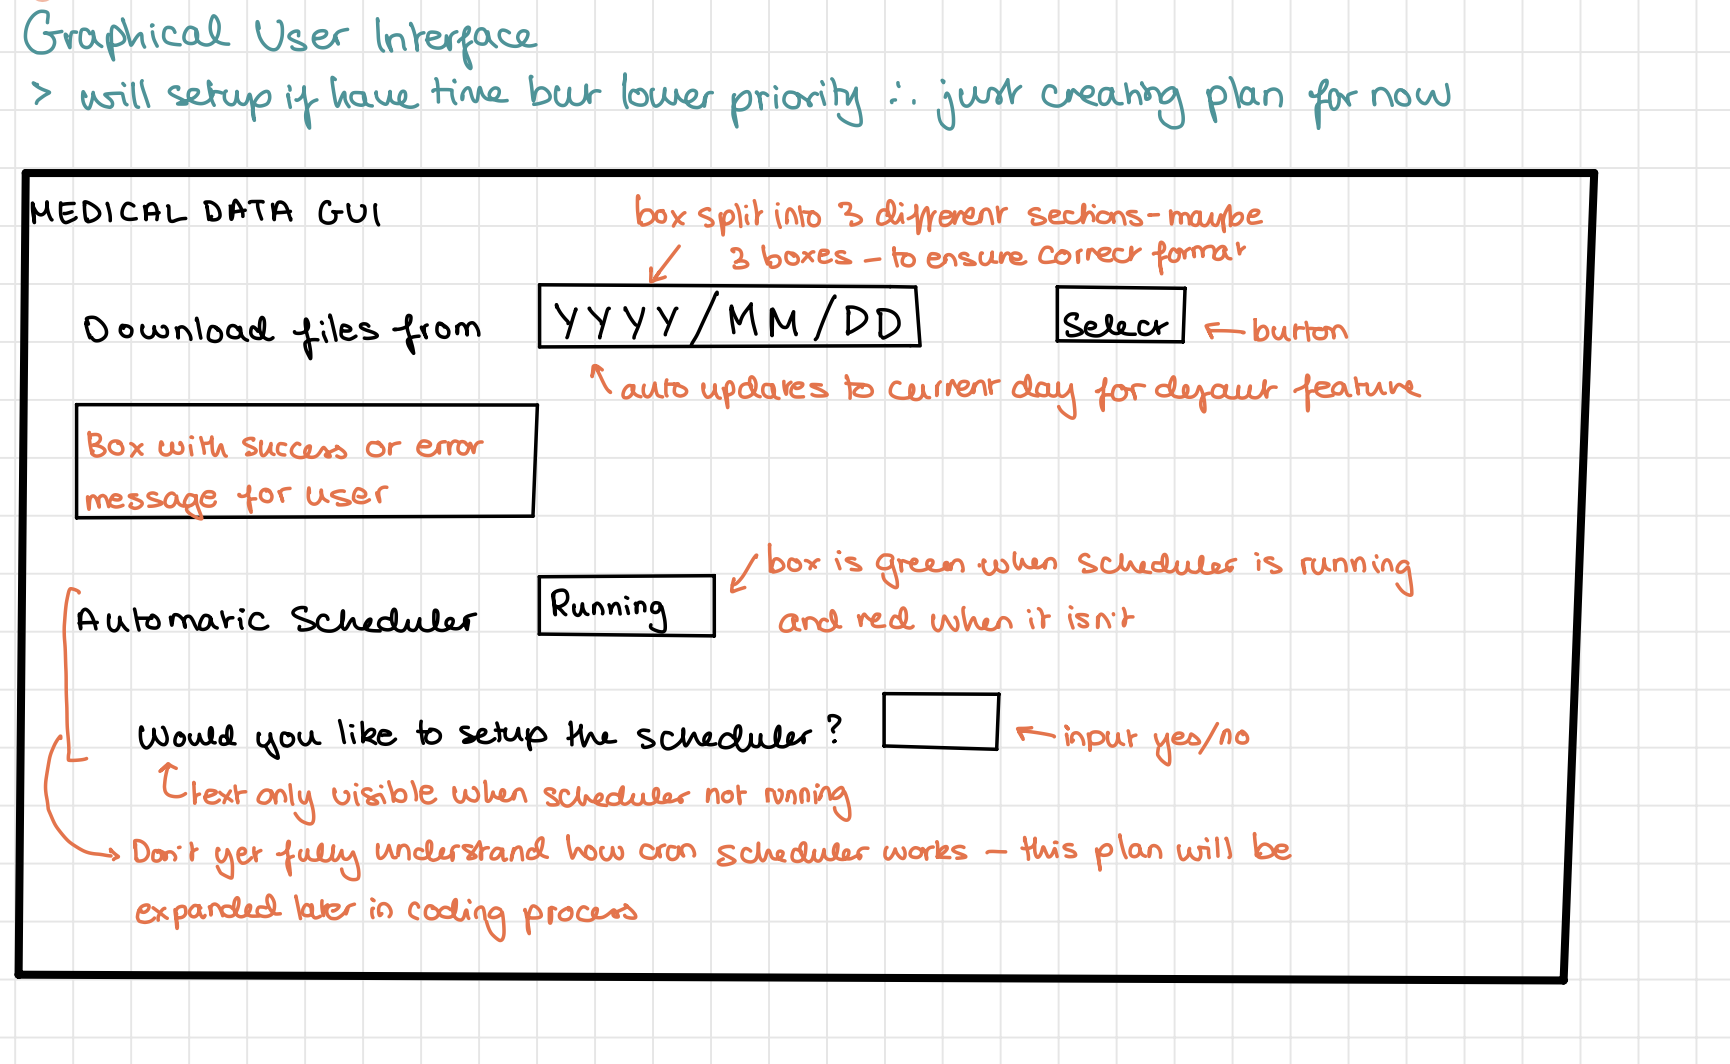 Graphical User Interface
> will setup if have time but lower priority ∴ just creating plan for now
MEDICAL DATA GUI
box split into 3 different sections - maybe
3 boxes - to ensure correct format
Download files from YYYY/MM/DD Select ← button
auto updates to current day for default feature
Box with success or error
message for user
box is green when scheduler is running
and red when it isn't
Automatic Scheduler Running
Would you like to setup the scheduler? ← input yes/no
text only visible when scheduler not running
Don't yet fully understand how cron scheduler works - this plan will be
expanded later in coding process